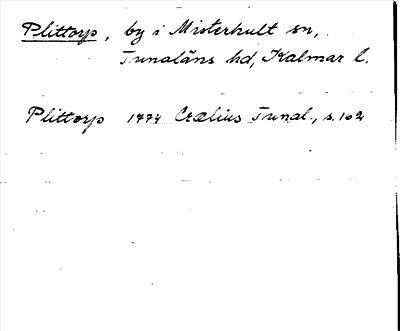 Plittorp, by i Misterhult sn,
Tunaläns hd, Kalmar l.
Plittorp 1774 Crælius Tunal., s. 102